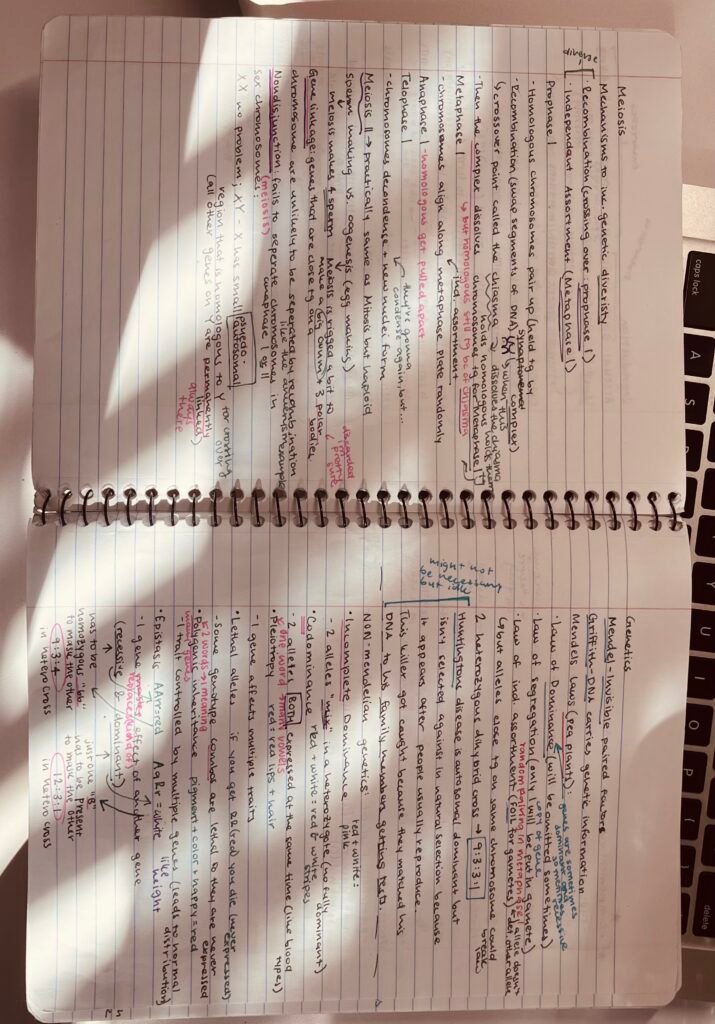 Meiosis
Mechanisms to inc. genetic diveristy
· Recombination (crossing over prophase 1)
· Independent Assortment (Metaphase 1)
Prophase 1
- Homologous chromosomes pair up (held tg by
synaptonemal complex)
- Recombination (swap segments of DNA)
↳ crossover point called the chiasma
when this dissolves the chiasma
holds homologous
- Then the complex dissolves
chromosomes tg for Metaphase 1
Metaphase 1
↳ but homologous still tg bc of chiasma
↙ ind. assortment
- chromosomes align along metaphase plate randomly
Anaphase 1 - homologous get pulled apart
Telophase 1
they're gonna
condense again, but...
- chromosomes decondense + new nuclei form
Meiosis II → practically same as Mitosis but haploid
sperm making vs. oogenesis (egg making)
meiosis makes 4 sperm
Meiosis is rigged a bit to
make a big ovum + 3 polar bodies
discarded
pretty
sure
Gene linkage: genes that are close tg on a
chromosome are unlikely to be seperated by recombination
Nondisjunction: fails to seperate chromosomes in
(meiosis)
anaphase I or II
sex chromosomes:
XX no problem; XY - X has small
psuedo-
autosomal
region that is homologous to Y for crossing over
(all other genes on Y are permanently
linked)
always
there
Genetics
Mendel - invisible paired factors
Griffith - DNA carries genetic information
Mendels laws (pea plants):
genes are sometimes
dominant, others
recessive
· Law of Dominance (will be omitted sometimes)
· Law of segregation (only 1 will be put in gamete)
copy of gene
random alining in metaphase
· Law of ind. assortment (FOIL for gametes)
1 allele doesn't
det. other allele
↳ but alleles close tg on same chromosome could
break law
2 heterozygous dihybrid cross → 9:3:3:1
might not
be necessary
but idk
Huntingtons disease is autosomal dominant but
isn't selected against in natural selection because
it appears after people usually reproduce.
This killer got caught because they matched his
DNA to his family members getting tests.
NON-mendelian genetics:
• Incomplete Dominance
red + white =
pink
- 2 alleles "mix" in a heterozygote (no fully
dominant)
• Codominance
red + white = red & white
stripes
- 2 alleles BOTH expressed at the same time (like blood
types)
one word → many vowels
• Pleiotropy
red = red lips + hair
- 1 gene affects multiple traits
• Lethal alleles
if you get RR (red) you die (never
expressed)
- some genotype combos are lethal so they are never
expressed
2 words → 1 meaning
• Polygenic inheritance
pigment + color + happy = red
many genes
- 1 trait controlled by multiple genes (leads to normal
distribution)
like
height
• Epistasis
AArr = red
AaRr = white
- 1 gene masks effect of another gene
replaces (kind of)
(recessive & dominant)
has to be
homozygous "bb"
to mask the other
9:3:4
in hetero cross
just one "B"
has to be present
to mask the other
12:3:1
in hetero cross
caps lock
A
S
U
I
O
P
delete